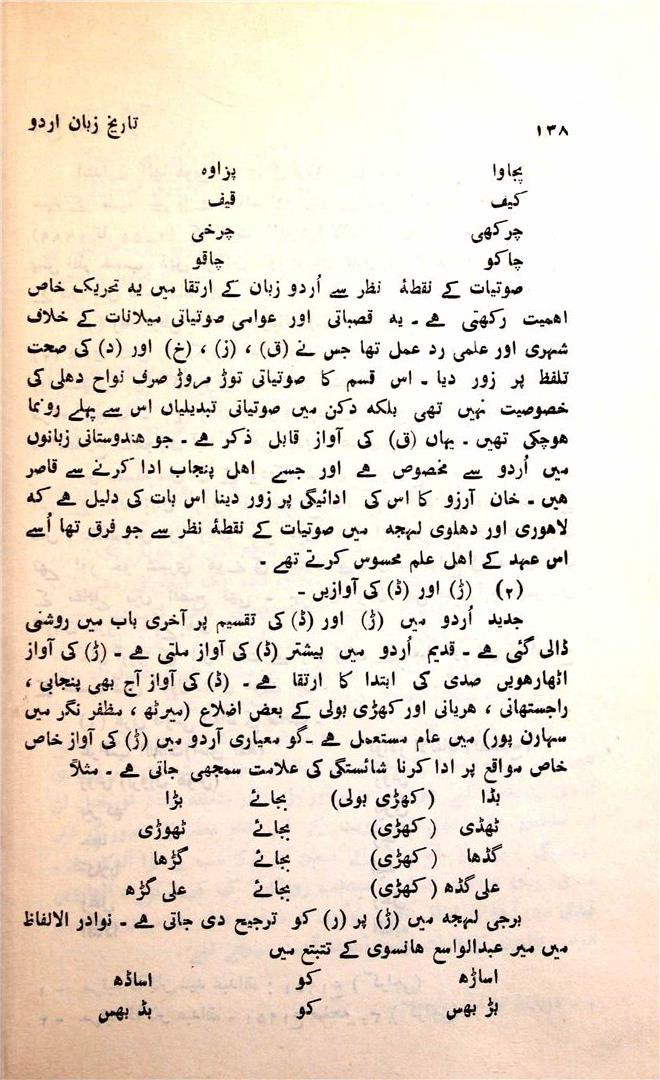 ۱۳۸ تاریخ زبان اردو
پجاوا پزاوہ
کیف قیف
چرکھی چرخی
چاکو چاقو
صوتیات کے نقطۂ نظر سے اُردو زبان کے ارتقا میں یہ تحریک خاص
اہمیت رکھتی ہے۔ یہ قصباتی اور عوامی صوتیاتی میلانات کے خلاف
شہری اور علمی رد عمل تھا جس نے (ق) ، (ز) ، (خ) اور (د) کی صحت
تلفظ پر زور دیا۔ اس قسم کا صوتیاتی توڑ مروڑ صرف نواح دھلی کی
خصوصیت نہیں تھی بلکہ دکن میں صوتیاتی تبدیلیاں اس سے پہلے رونما
ہوچکی تھیں۔ یہاں (ق) کی آواز قابل ذکر ہے۔ جو ہندوستانی زبانوں
میں اُردو سے مخصوص ہے اور جسے اہل پنجاب ادا کرنے سے قاصر
ہیں۔ خان آرزو کا اس کی ادائیگی پر زور دینا اس بات کی دلیل ہے کہ
لاہوری اور دھلوی لہجہ میں صوتیات کے نقطۂ نظر سے جو فرق تھا اُسے
اس عہد کے اہل علم محسوس کرتے تھے۔
(۲) (ڑ) اور (ڈ) کی آوازیں۔
جدید اُردو میں (ڑ) اور (ڈ) کی تقسیم پر آخری باب میں روشنی
ڈالی گئی ہے۔ قدیم اُردو میں بیشتر (ڈ) کی آواز ملتی ہے۔ (ڑ) کی آواز
اٹھارھویں صدی کی ابتدا کا ارتقا ہے۔ (ڈ) کی آواز آج بھی پنجابی ،
راجستھانی ، ہریانی اور کھڑی بولی کے بعض اضلاع (میرٹھ ، مظفر نگر میں
سہارن پور) میں عام مستعمل ہے۔ گو معیاری اُردو میں (ڑ) کی آواز خاص
خاص مواقع پر ادا کرنا شائستگی کی علامت سمجھی جاتی ہے۔ مثلاً
بڈا (کھڑی بولی) بجائے بڑا
ٹھڈی (کھڑی) بجائے ٹھوڑی
گڈھا (کھڑی) بجائے گڑھا
علی گڈھ (کھڑی) بجائے علی گڑھ
برجی لہجہ میں (ڑ) پر (ر) کو ترجیح دی جاتی ہے۔ نوادر الالفاظ
میں میر عبدالواسع ہانسوی کے تتبع میں
اساڑھ کو اساڈھ
بڑ بھس کو بڈ بھس